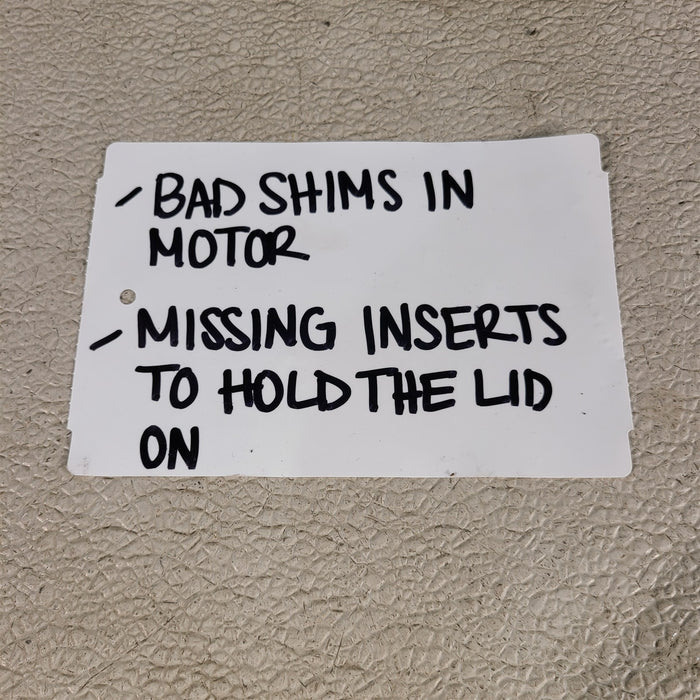 - BAD SHIMS IN
MOTOR
- MISSING INSERTS
TO HOLD THE LID
ON